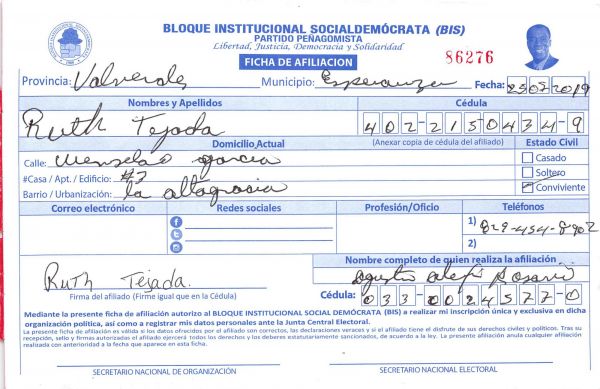 BLOQUE INSTITUCIONAL SOCIALDEMÓCRATA (BIS)
PARTIDO PEÑAGOMISTA
Libertad, Justicia, Democracia y Solidaridad
FICHA DE AFILIACION
86276
Provincia: Valverde Municipio: Esperanza Fecha: 25022019
Nombres y Apellidos Cédula
Ruth Tejada 402-2150434-9
Domicilio Actual (Anexar copia de cédula del afiliado) Estado Civil
Calle: garcia Casado
#Casa / Apt. / Edificio: #7 Soltero
Barrio / Urbanización: la altagracia Conviviente
Correo electrónico Redes sociales Profesión/Oficio Teléfonos
1) 829-454-8902
2)
Nombre completo de quien realiza la afiliación
Ruth Tejada. Rosario
Firma del afiliado (Firme igual que en la Cédula) Cédula: 033-0024577-0
Mediante la presente ficha de afiliación autorizo al BLOQUE INSTITUCIONAL SOCIAL DEMÓCRATA (BIS) a realizar mi inscripción única y exclusiva en dicha
organización política, así como a registrar mis datos personales ante la Junta Central Electoral.
La presente ficha de afiliación es válida si los datos ofrecidos por el afiliado son correctos, las declaraciones veraces y si el afiliado tiene el disfrute de sus derechos civiles y políticos. Tras su
recepción, sello y firmas autorizadas el afiliado ejercerá todos los derechos y los deberes estatutariamente sancionados, de acuerdo a la ley. La presente afiliación anula cualquier afiliación
realizada con anterioridad a la fecha que aparece en esta ficha.
SECRETARIO NACIONAL DE ORGANIZACIÓN SECRETARIO NACIONAL ELECTORAL